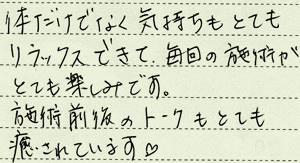 体だけでなく気持ちもとても
リラックスできて、毎回の施術が
とても楽しみです。
施術前後のトークもとても
癒されています♡